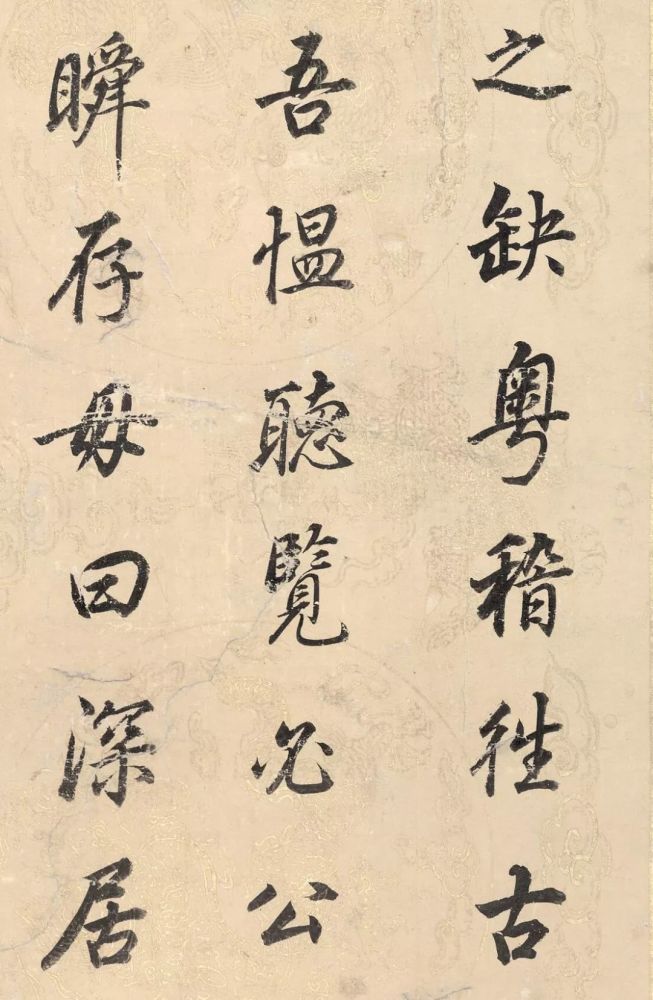 之缺粤稽往古
吾愠聽覽必公
瞬存毋曰深居